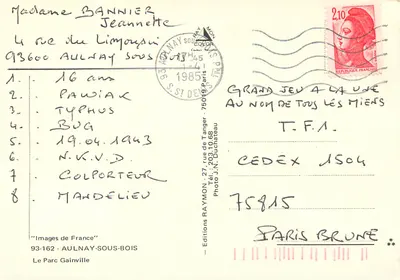 Madame BANNIER
Jeannette
4 rue du Limousin
93600 AULNAY SOUS BOIS
1. 16 ans
2. PAWIAK
3. TYPHUS
4. BUG
5. 19.04.1943
6. N.K.V.D.
7 COLPORTEUR
8 MANDELIEU
"Images de France"
93-162 - AULNAY-SOUS-BOIS
Le Parc Gainville
- Editions RAYMON - 27, rue de Tanger - 75019 Paris
Tél.: 203.10.68
Photo J.N. Duchateau
93 AULNAY
1985
S. ST DENIS
2,10
GRAND JEU A LA UNE
AU NOM DE TOUS LES MIENS
T.F.1.
CEDEX 1504
75815
PARIS BRUNE